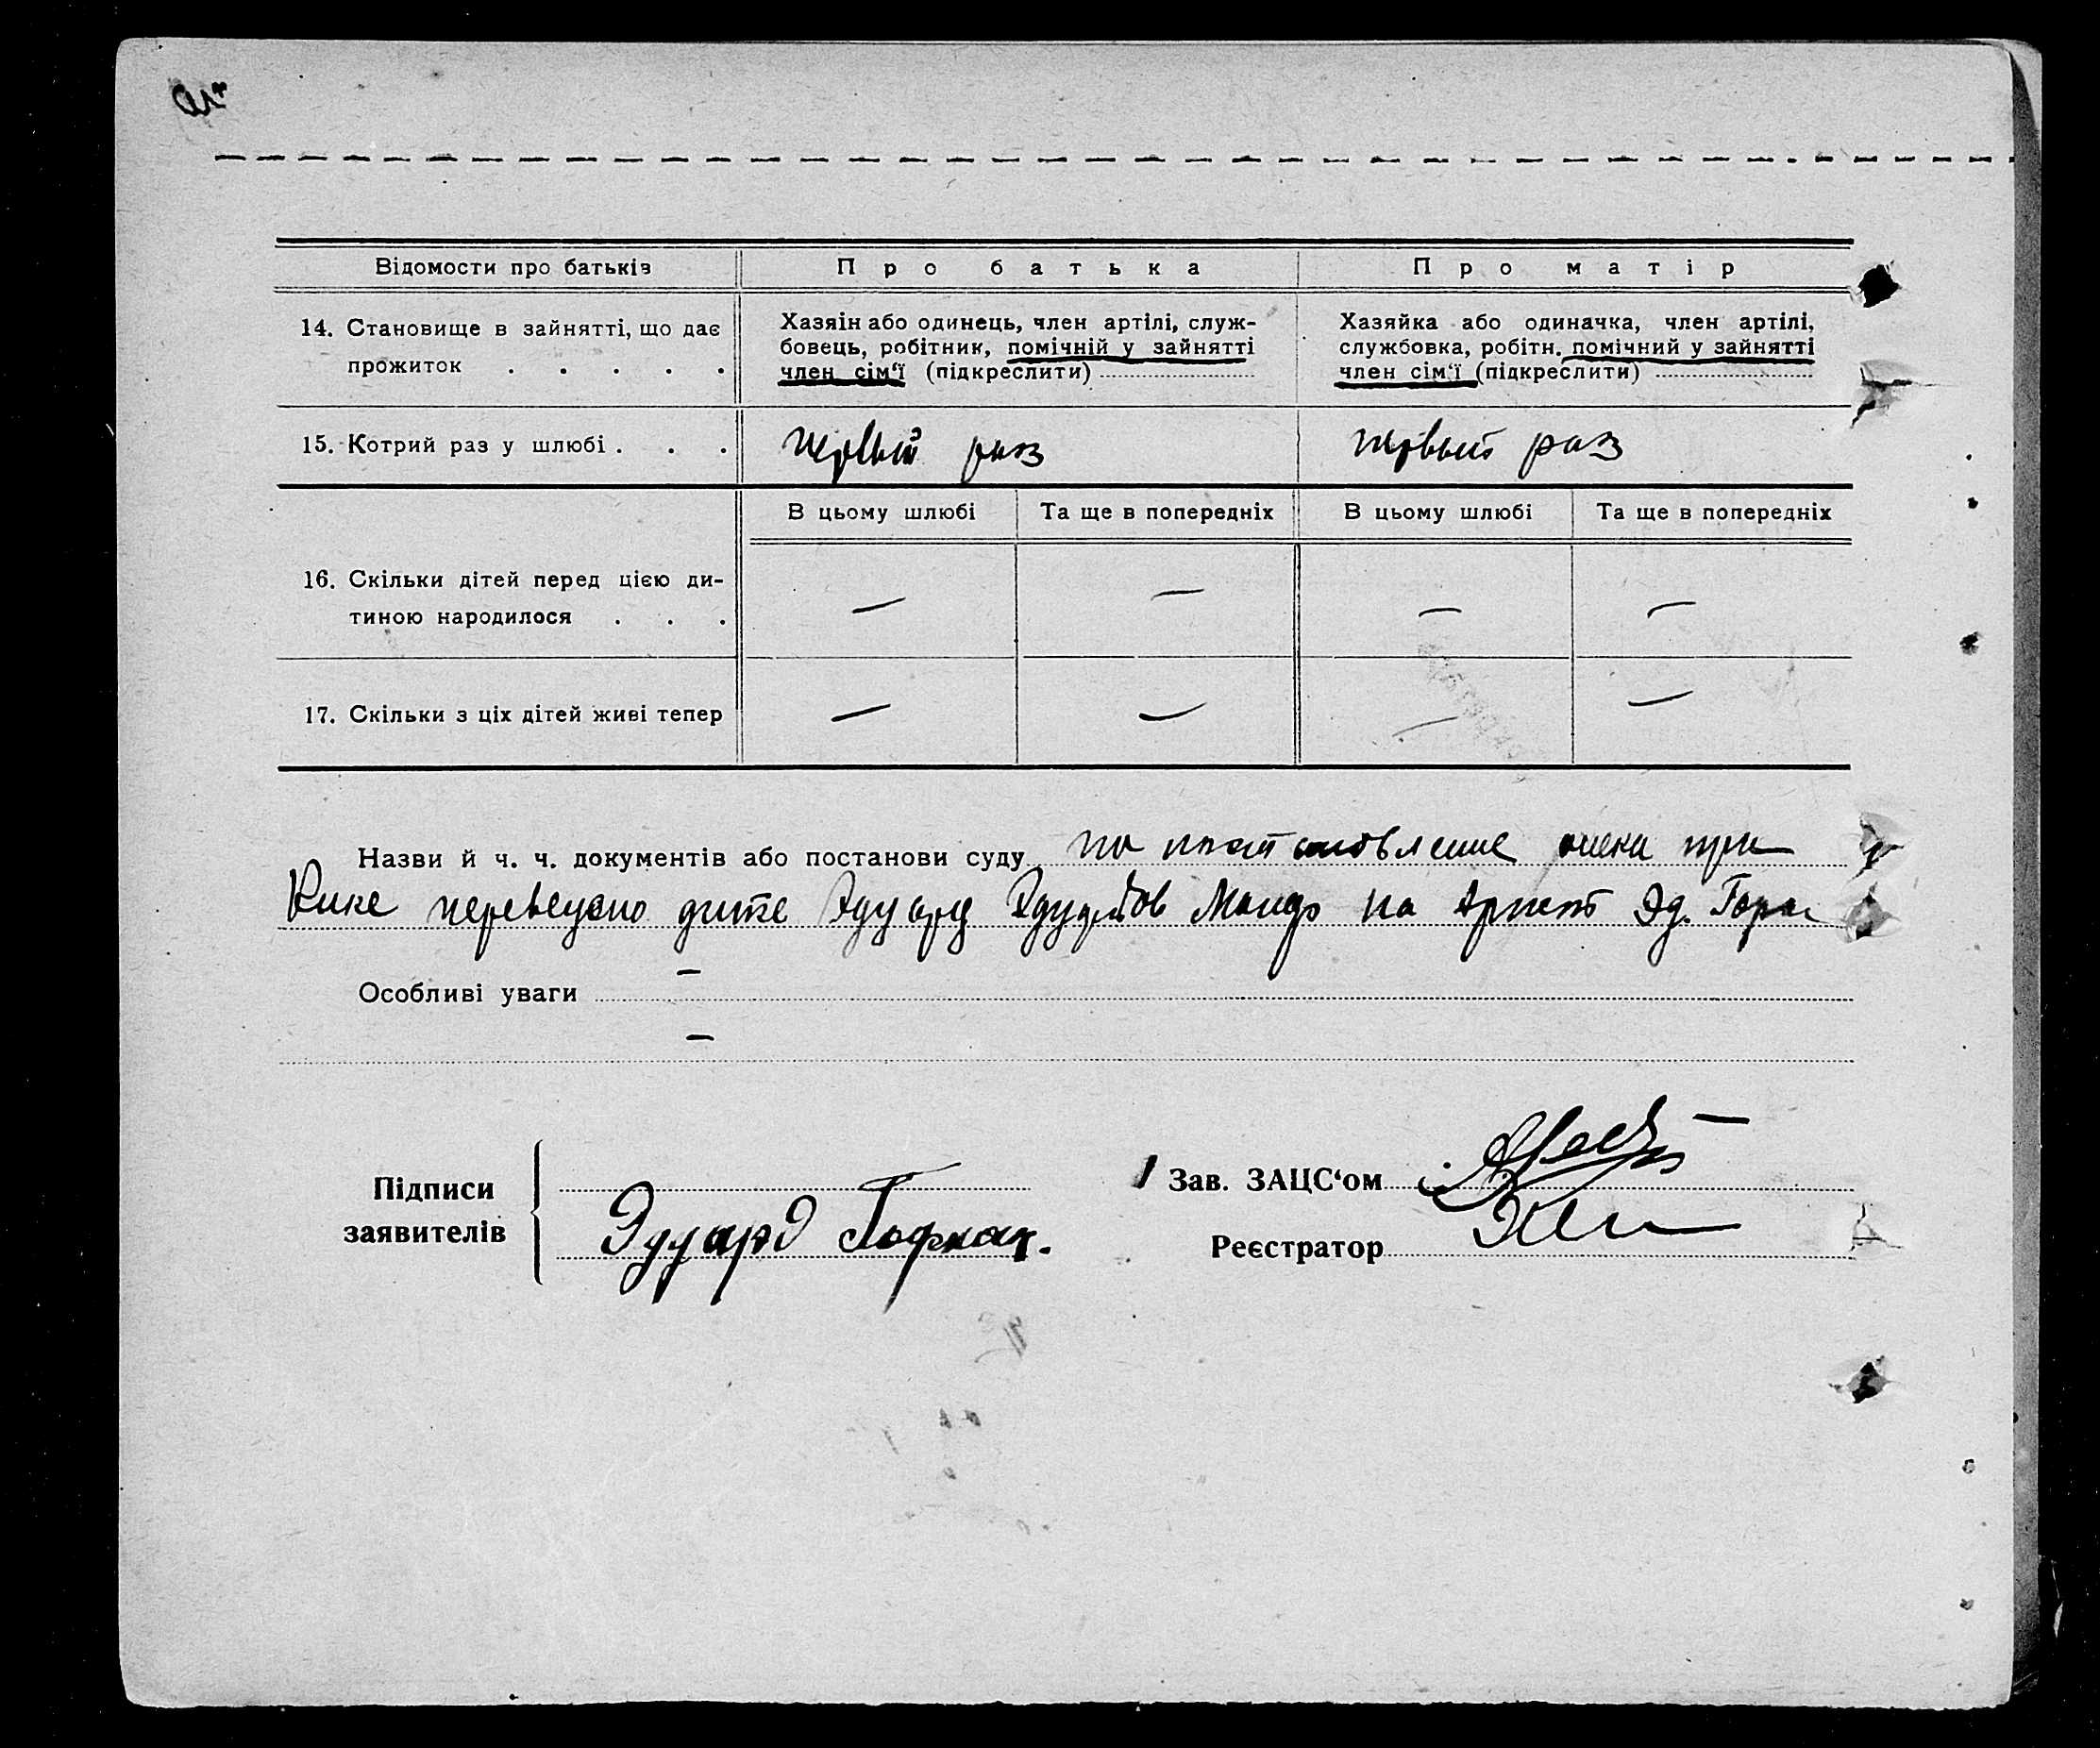 Відомости про батьків
Про батька
Про матір
14. Становище в зайнятті, що дає
прожиток . . . . .
Хазяін або одинець, член артілі, служ-
бовець, робітник, помічній у зайнятті
член сім'ї (підкреслити)
Хазяйка або одиначка, член артілі,
службовка, робітн. помічний у зайнятті
член сім'ї (підкреслити)
15. Котрий раз у шлюбі . . .
первый раз
первый раз
В цьому шлюбі
Та ще в попередніх
В цьому шлюбі
Та ще в попередніх
16. Скільки дітей перед цією ди-
тиною народилося . . .
— — — —
17. Скільки з ціх дітей живі тепер
— — — —
Назви й ч. ч. документів або постанови суду по опеки при
дите Эдуард на Эд.
Особливі уваги —
—
Підписи
заявителів
Эдуард
Зав. ЗАЦС‘ом
Реєстратор